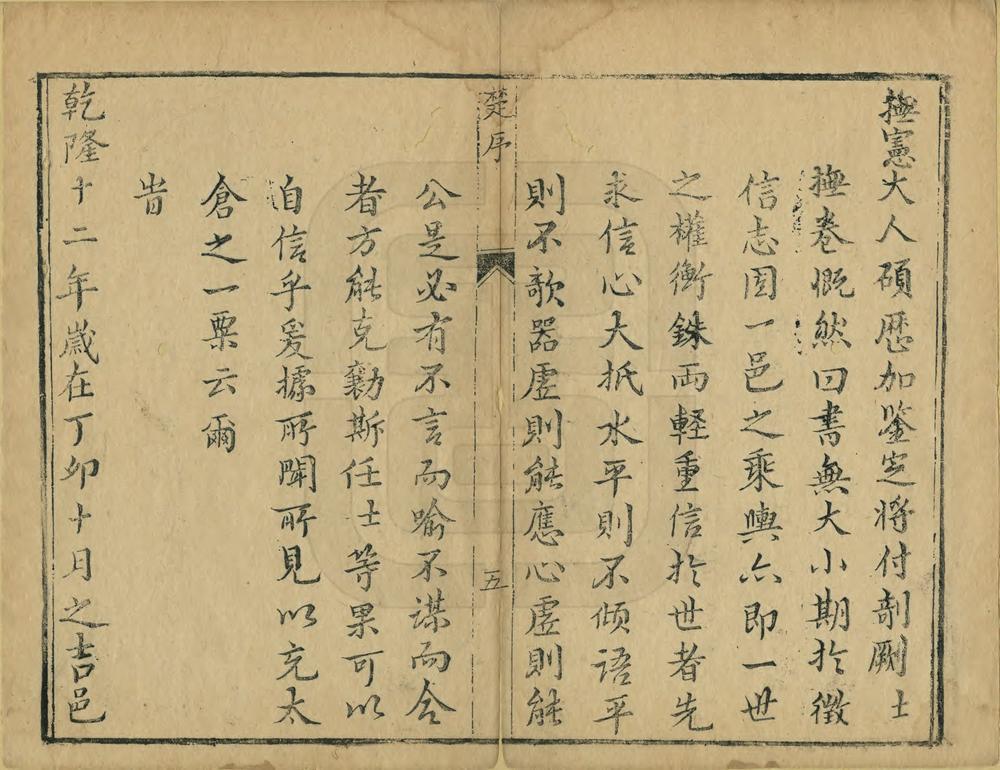 撫憲大人碩歷加鑒定將付剞劂士
撫卷慨然曰書無大小期扵徵
信志固一邑之乘輿亦即一世
之權衡銖両輕重信扵世者先
求信心大抵水平則不傾語平
則不歌器虛則能應心虛則能
楚序
五
公是必有不言而喻不謀而合
者方能克勷斯任士等果可以
自信乎爰據所聞所見以充太
倉之一粟云爾
旹
乾隆十二年歲在丁卯十月之吉邑